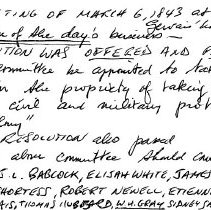 TING OF MARCH 6, 1843 at
Gervais'
of the day's business—
TION WAS OFFERED AND
committee be appointed to ta
n the propriety of taking
civil and military prot
RESOLUTION also passed
above committee should con
S. L. BABCOCK, ELISAH WHITE, JAMES
SHORTESS, ROBERT NEWELL, ETIENN
THOMAS HUBBARD, W.H. GRAY, SIDNEY S